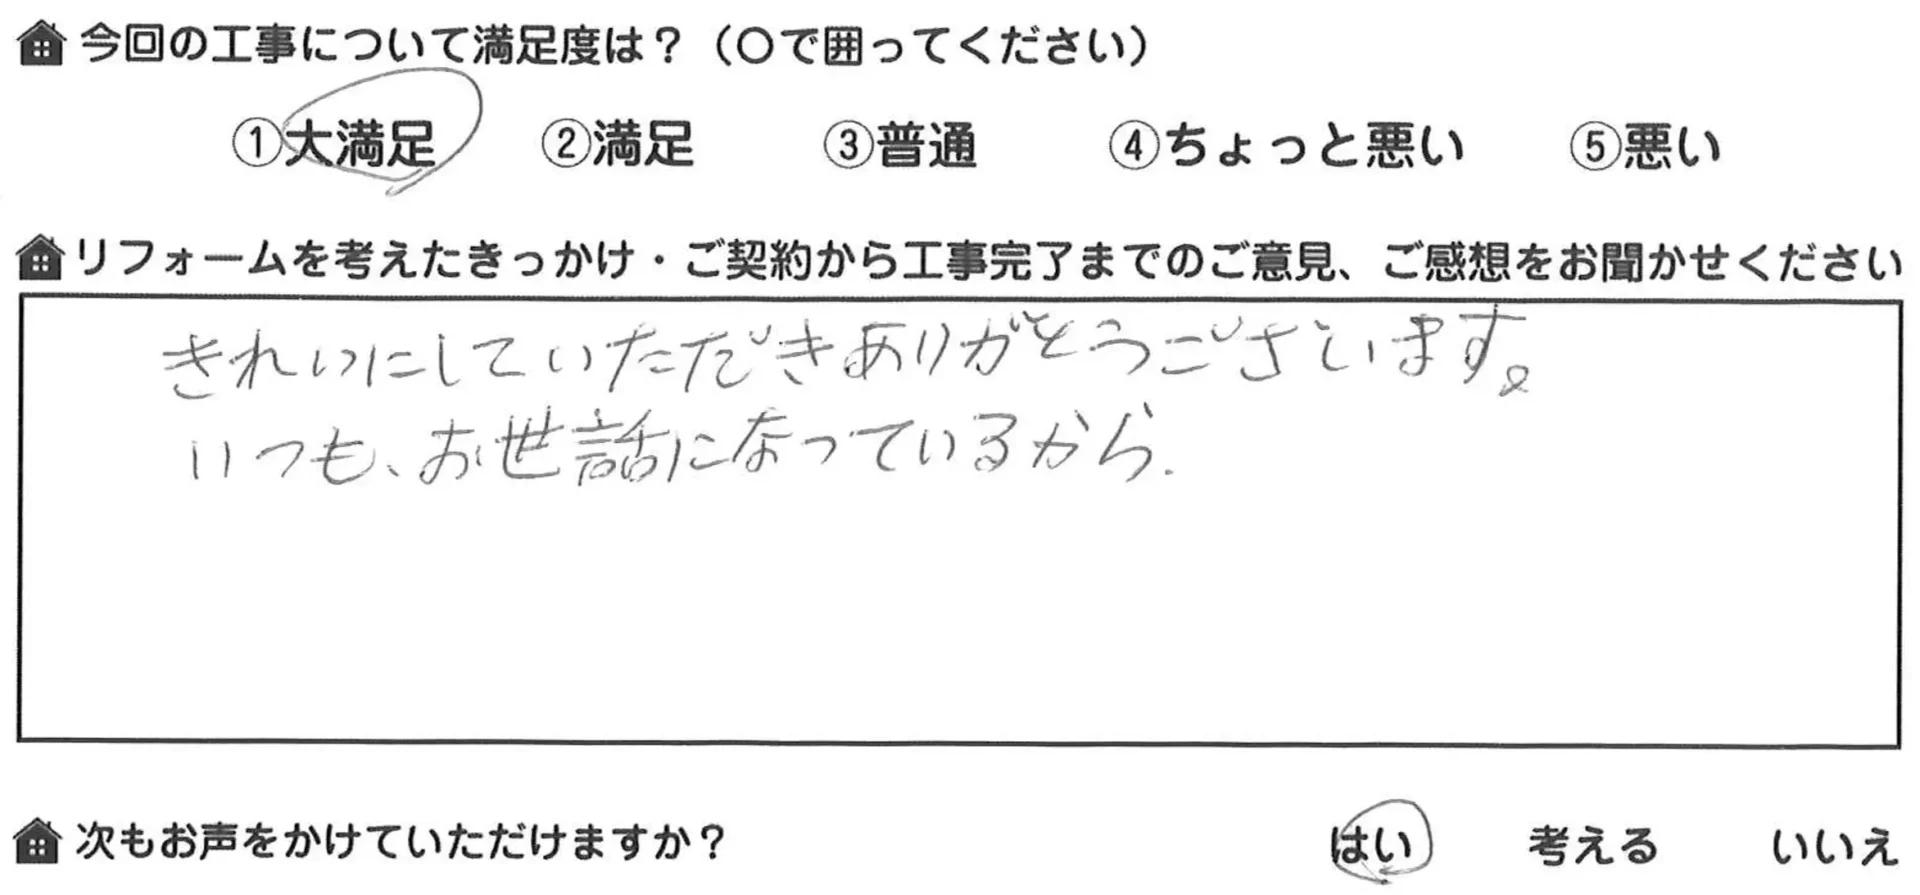 今回の工事について満足度は？（〇で囲ってください）
①大満足 ②満足 ③普通 ④ちょっと悪い ⑤悪い
リフォームを考えたきっかけ・ご契約から工事完了までのご意見、ご感想をお聞かせください
きれいにしていただきありがとうございます。
いつも、お世話になっているから.
次もお声をかけていただけますか？ はい 考える いいえ